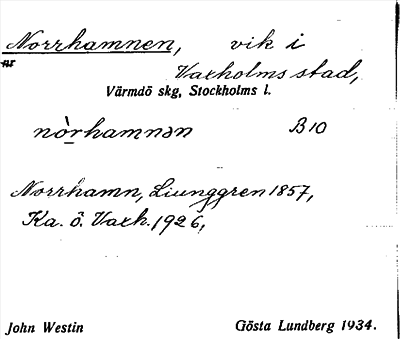 Norrhamnen, vik i
nr
Vaxholms stad,
Värmdö skg, Stockholms l.
nòrhamnən B10
Norrhamn, Ljunggren 1857,
Ka. ö. Vaxh. 1926,
John Westin Gösta Lundberg 1934.